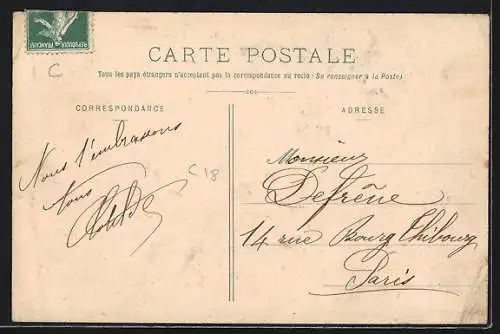 REPUBLIQUE FRANÇAISE
C
CARTE POSTALE
Tous les pays étrangers n'acceptent pas la correspondance au recto (Se renseigner à la Poste)
CORRESPONDANCE
ADRESSE
Nous t'embrassons
tous
C18
Monsieur
Defrêne
14 rue Bourg Thibourg
Paris